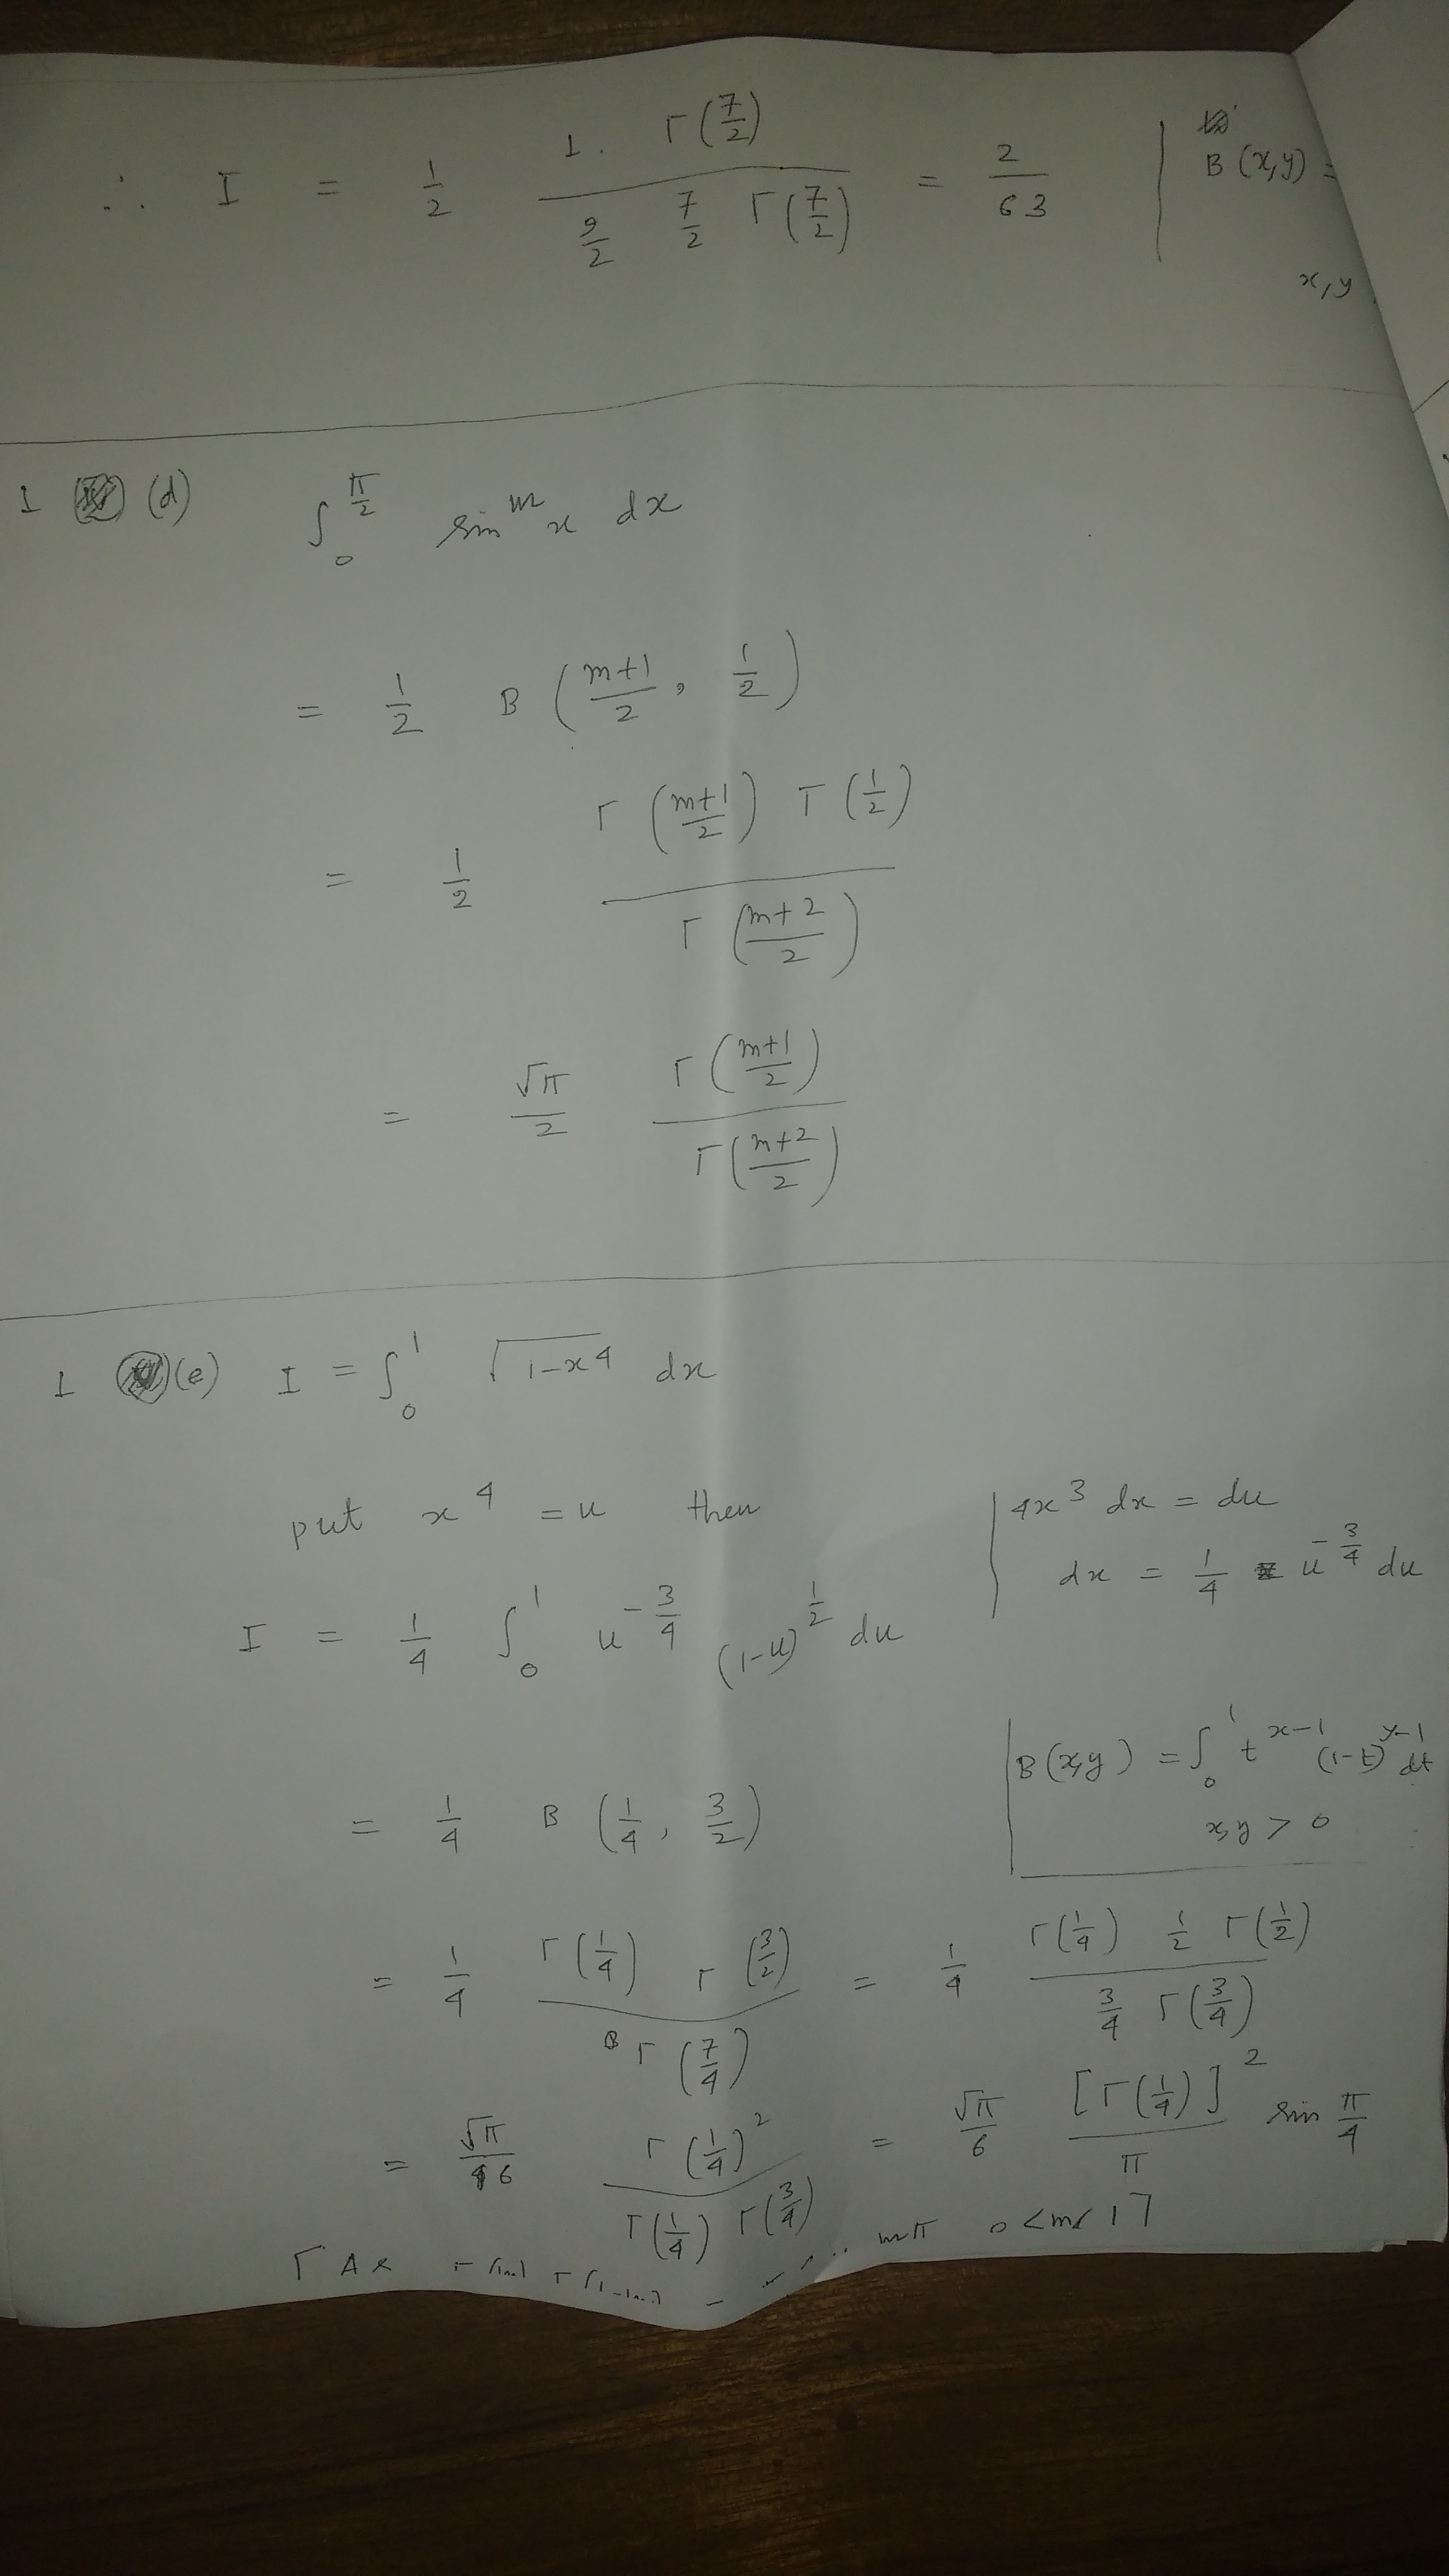 ∴ I = 1/2 (1. Γ(7/2)) / (9/2 7/2 Γ(7/2)) = 2/63
B(x,y) =
x,y
1 (d) ∫₀^(π/2) sin^m x dx
= 1/2 B((m+1)/2, 1/2)
= 1/2 (Γ((m+1)/2) Γ(1/2)) / Γ((m+2)/2)
= √π/2 Γ((m+1)/2) / Γ((m+2)/2)
1 (e) I = ∫₀^1 √(1-x^4) dx
put x^4 = u then
4x^3 dx = du
dx = 1/4 u^(-3/4) du
I = 1/4 ∫₀^1 u^(-3/4) (1-u)^(1/2) du
B(x,y) = ∫₀^1 t^(x-1) (1-t)^(y-1) dt
x,y > 0
= 1/4 B(1/4, 3/2)
= 1/4 (Γ(1/4) Γ(3/2)) / Γ(7/4) = 1/4 (Γ(1/4) 1/2 Γ(1/2)) / (3/4 Γ(3/4))
= √π/6 Γ(1/4)^2 / (Γ(1/4) Γ(3/4)) = √π/6 [Γ(1/4)]^2 / π sin π/4
mπ 0<m<1]